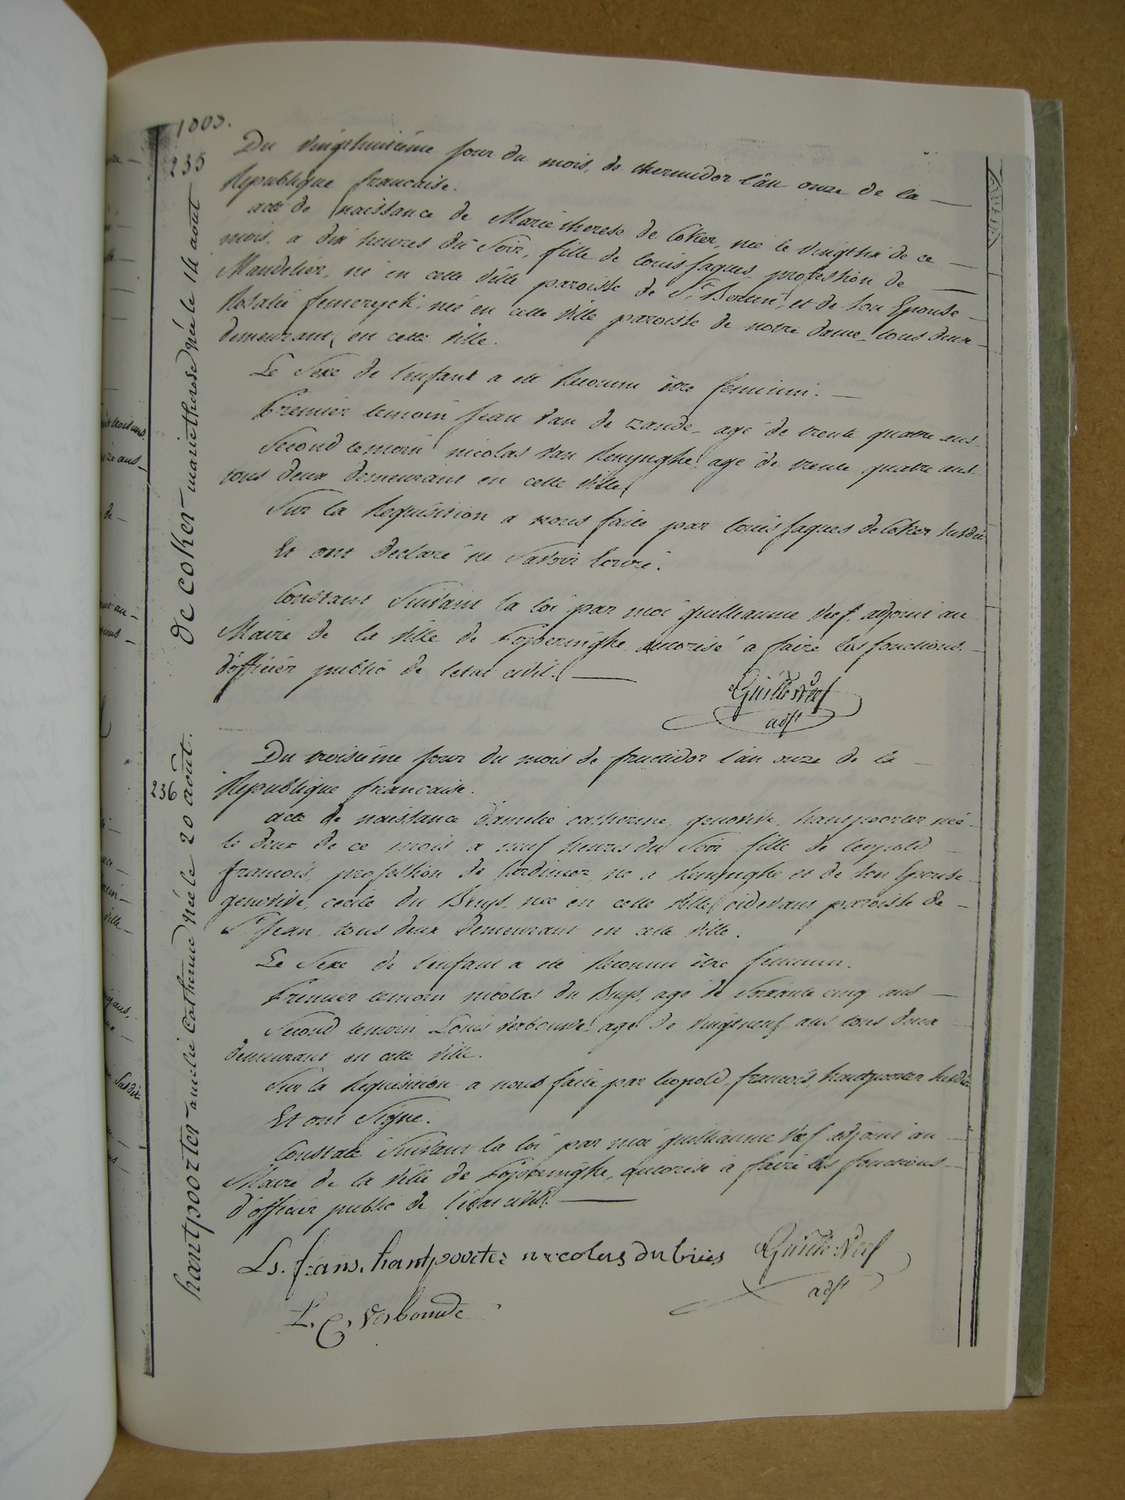 1803.
235
de coker - marie therese née le 14 août
Du vingthuitième jour du mois de thermidor l'an onze de la
Republique francaise.
acte de naissance de Marie therese de Coker, née le vingtsix de ce
mois a dix heures du Soir, fille de louis jaques profession de
Mandelier, né en cette ville paroisse de St Bertin et de Son Epouse
Rosalie femeryck née en cette ville paroisse de notre dame, tous deux
demeurant en cette ville.
Le Sexe de l'enfant a été Reconnu être feminin.
Premier temoin jean van de zande agé de trente quatre ans
Second temoin nicolas van Renynghe agé de trente quatre ans
tous deux demeurant en cette ville
Sur la Requisition a nous faite par louis jaques de Coker Susdit
Et ont declaré ne Savoir Ecrire.
Constaté Suivant la loi par moi guillaume Verf adjoint au
Maire de la ville de Poperinghe autorisé a faire les fonctions
d'officier public de l'etat civil.
Guille Verf
adjt
236
hantpoorter - amelie Catherine née le 20 août.
Du troisième jour du mois de fructidor l'an onze de la
Republique francaise.
acte de naissance d'amelie catherine genoveve hantpoorter née
le deux de ce mois a neuf heures du Soir fille de leopold
francois, profession de Cordinier, né a Renynghe et de Son Epouse
genoveve cecile du Bruys née en cette ville cidevant paroisse de
St Jean tous deux demeurant en cette ville.
Le Sexe de l'enfant a été Reconnu être feminin.
Premier temoin nicolas du Bruys, agé de Soixante cinq ans
Second temoin Louis verbounde agé de vingtneuf ans tous deux
demeurant en cette ville.
Sur la Requisition a nous faite par leopold francois hantpoorter Susdit
Et ont Signe.
Constaté Suivant la loi par moi guillaume Verf adjoint au
Maire de la ville de Poperinghe, autorisé a faire les fonctions
d'officier public de l'etat civil.
Ls. frans. hantpoorter nicolas du briés Guille Verf
adjt
L. C. verbounde